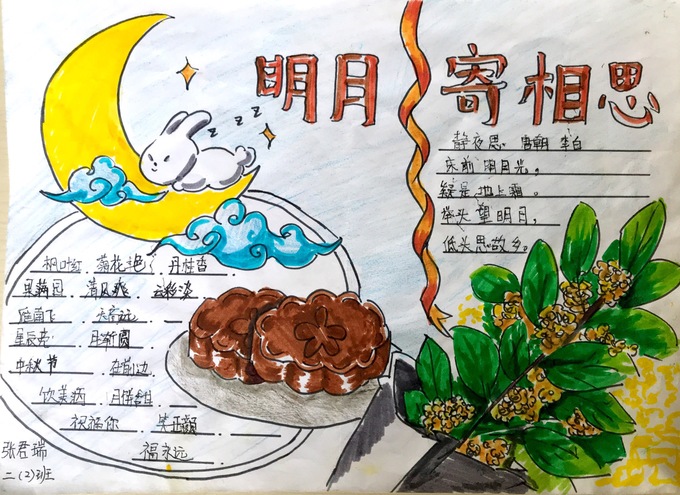 明月寄相思
静夜思 唐朝 李白
床前明月光，
疑是地上霜。
举头望明月，
低头思故乡。
枫叶红 菊花艳 丹桂香
果满园 清风爽 云彩淡
飞 天高远
星辰亮 月渐圆
中秋节 在身边
饮美酒 月饼甜
祝福你 笑开颜
福永远
张君瑞
二(2)班